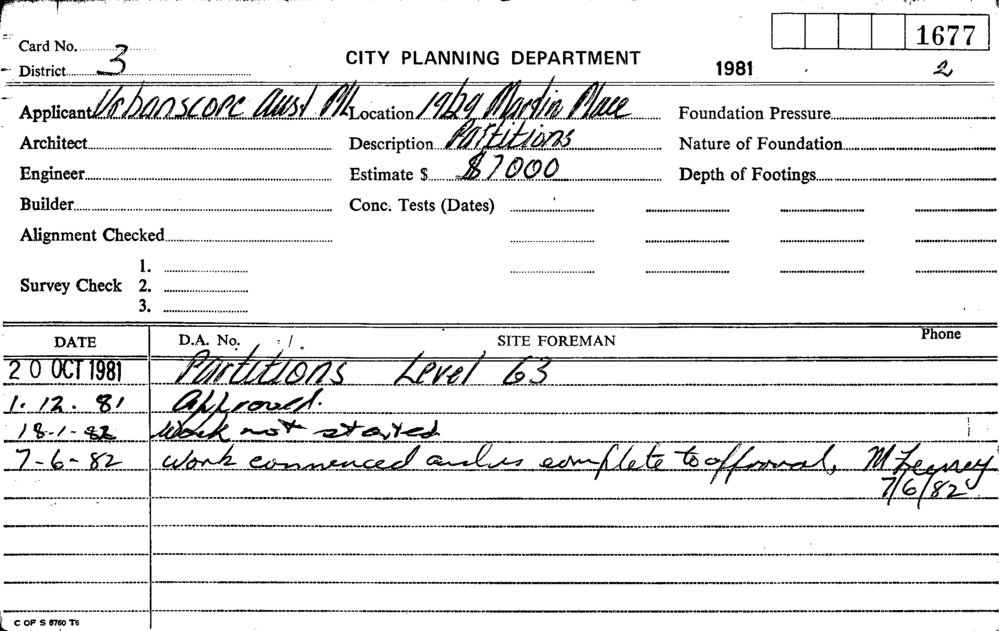 1677
Card No. 3
CITY PLANNING DEPARTMENT
1981 2
District
Applicant Urbanscope Aust P/L Location 19/29 Martin Place Foundation Pressure
Architect Description Partitions Nature of Foundation
Engineer Estimate $ $7000 Depth of Footings
Builder Conc. Tests (Dates)
Alignment Checked
1.
Survey Check 2.
3.
DATE D.A. No. /. SITE FOREMAN Phone
20 OCT 1981 Partitions Level 63
1.12.81 Approved.
18-1-82 Work not started
7-6-82 Work commenced and is complete to approval, M
7/6/82
C OF S 6760 T6